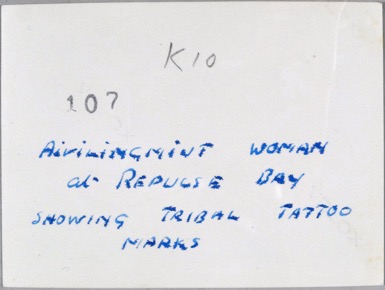 K10
107
AIVILINGMIUT WOMAN
at REPULSE BAY
SHOWING TRIBAL TATTOO
MARKS